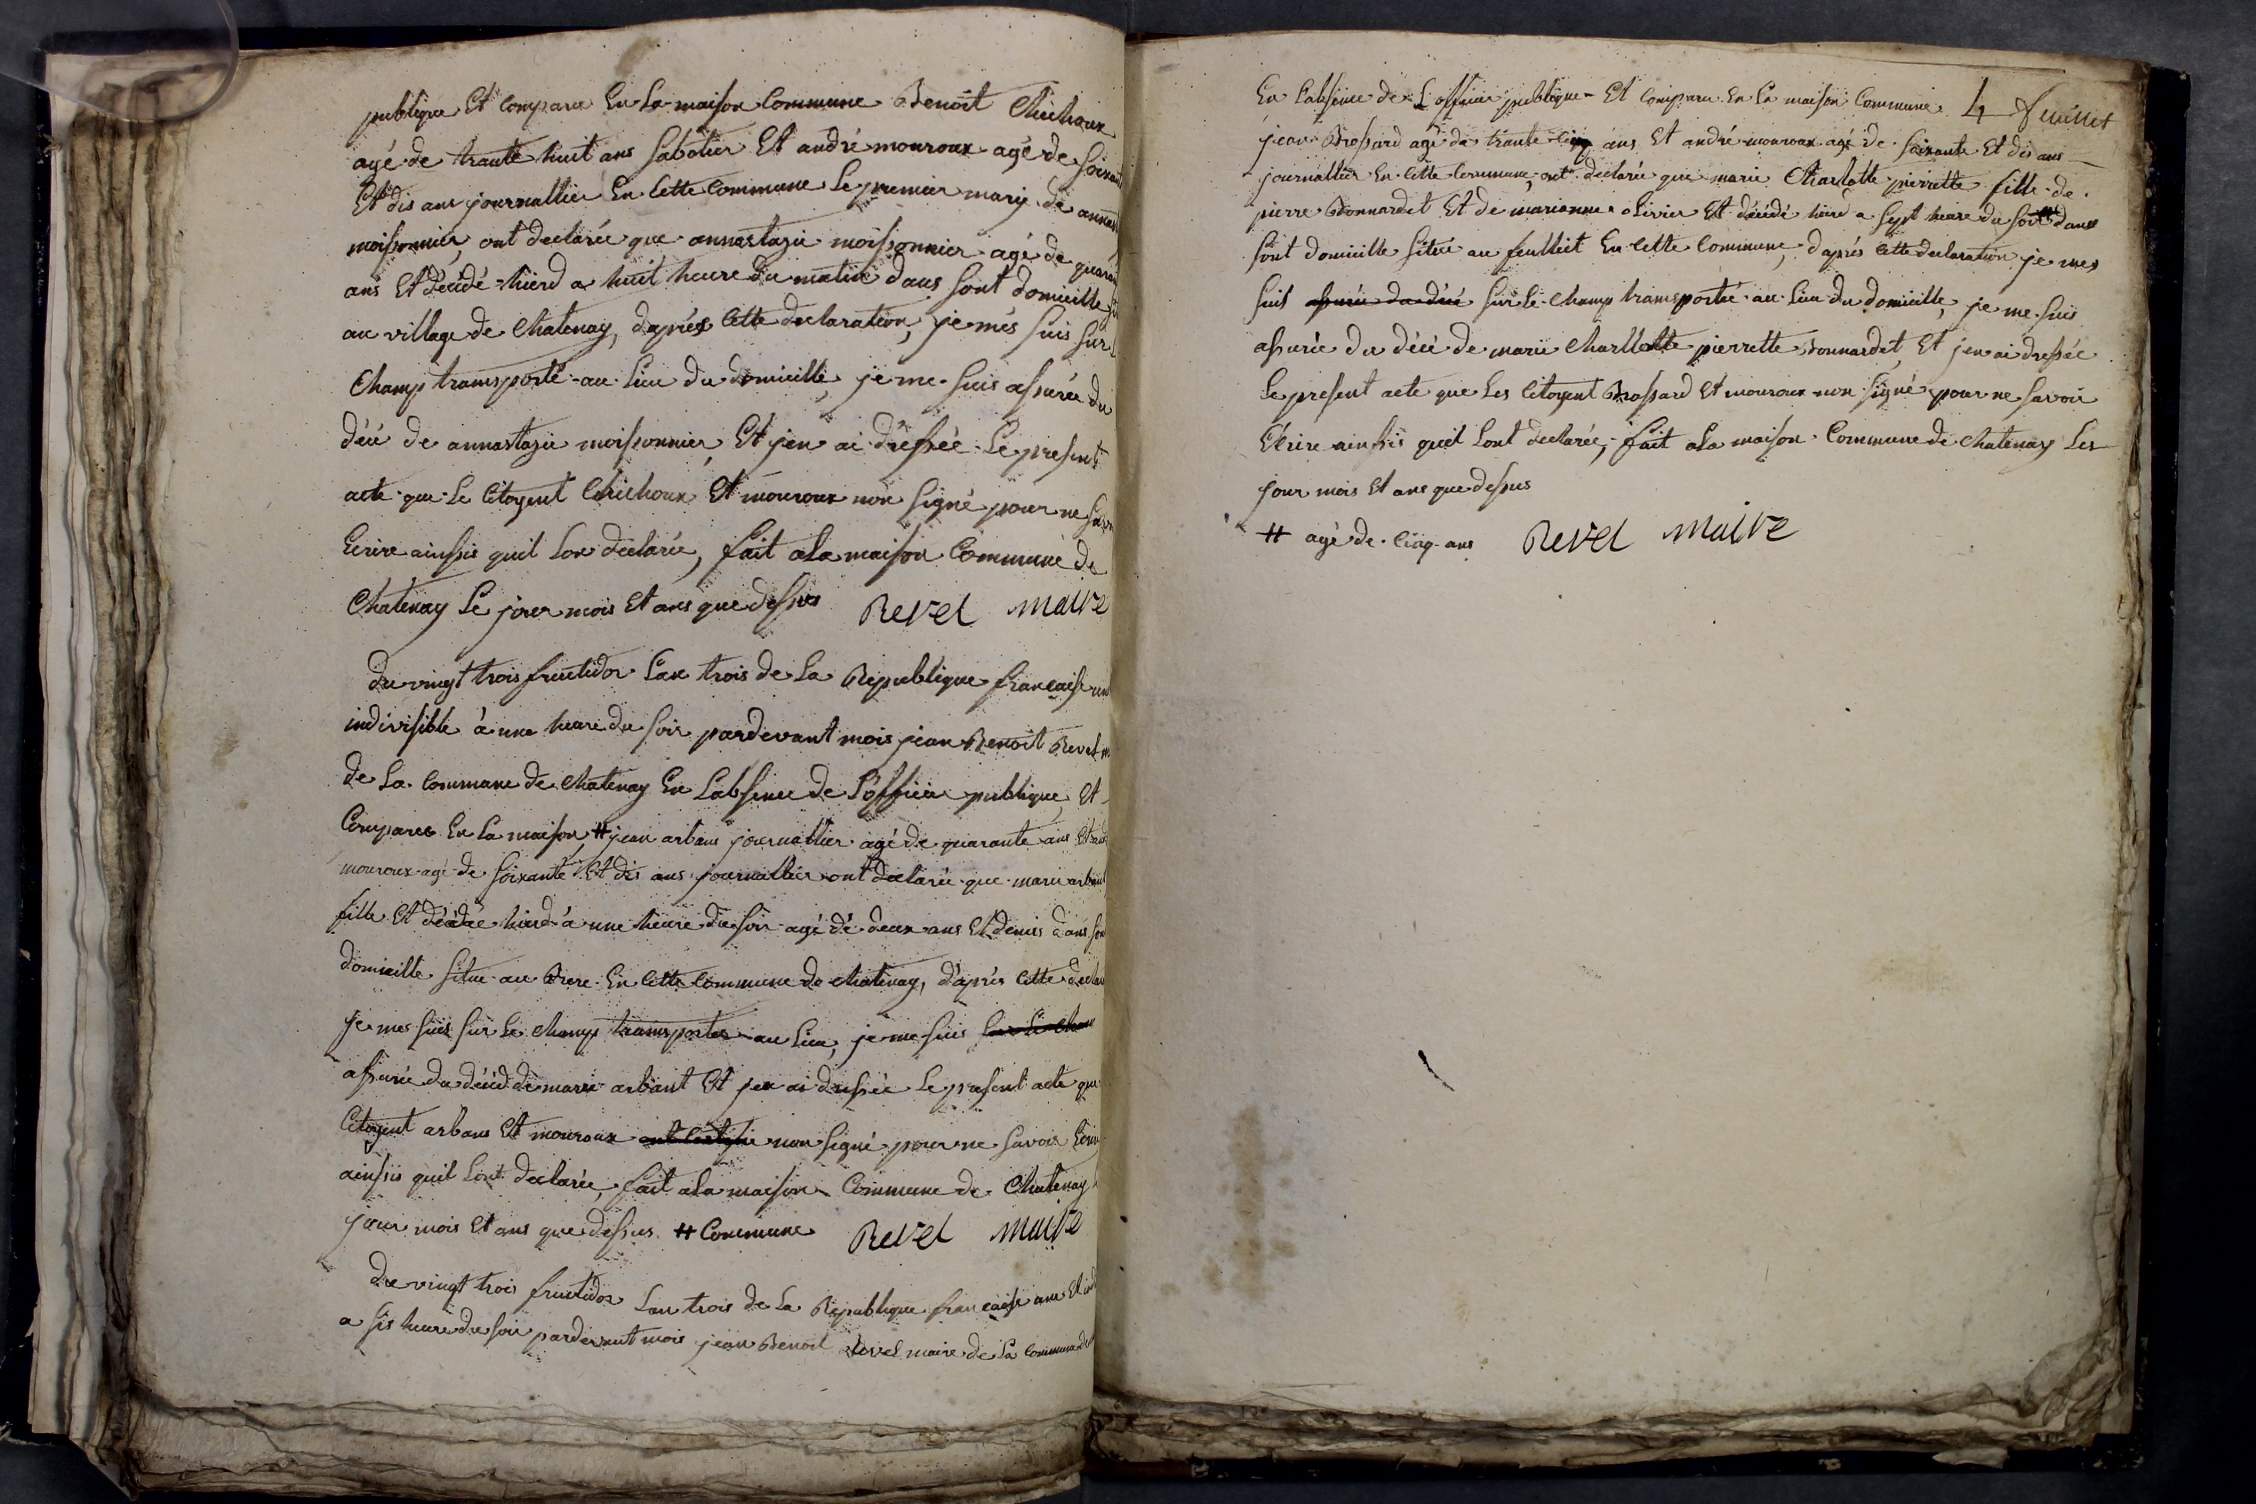 publique Et Comparu En La maison Commune Benoit Chichoux
agé de trante huit ans Sabotier Et andré mouroux agé de Soixant
Et dis ans journallier En Cette Commune Le premier mary de annast
moissonnier, ont declarée que annastazie moissonnier agé de quaran
ans Et décidé hierd a huit heure du matin dans Sont domicille
au village de Chatenay, daprés Cette declaration, je més Suis Sur
Champ transporté au Lieu du domicille, je me Suis assurée du
décé de annastazie moissonnier Et jen ai dressée Le present
acte que Le Citoyent Chichoux Et mouroux non Signé pour ne Sav
Ecrire ainssie quil Lon declarée, fait a La maison Commune de
Chatenay Le jour mois Et ans que dessus Revel maire
du vingt trois fructidor Lan trois de La Republique francaise un
indivisible à une heure du Soir pardevant mois jean Benoit Revel m
de La Commune de Chatenay En Labsence de Lofficier publique, Et
Comparu En La maison # jean arbant journallier agé de quarante ans Et and
mouroux agé de Soixante Et dis ans journallier ont declarée que marie arbant
fille Et décédée hierd à une heure du Soir agé dé deux ans Et demis dans Son
domicille Situe au En Cette Commune de Chatenay, d'aprés Cette declar
Je mes Suis Sur Le Champ transportée au Lieu, je me Suis Sur Le Cham
assurée du décéd de marie arbant Et jen ai dressée Le present acte que
Citoyent arbant Et mouroux non Signé pour ne Savoir Ecrire
ainssie quil Lont declarée, fait a La maison Commune de Chatenay
jour mois Et ans que dessus # Commune Revel maire
du vingt trois fructidor Lan trois de La Republique francaise une Et ind
a Sis heure du Soir pardevant mois jean Benoit Revel maire de La Commune de
4 feuillet
En Labsence de Lofficier publique Et Comparu En La maison Commune
jean Brossard agé de trante Cinq ans Et andré mouroux agé de Soixante Et dis ans
journallier En Cette Commune, ont declarée que marie Charlotte pierrette fille de
pierre Bonnardet Et de marianne olivier Et décédé hierd a Sept heure du Soir # dans
Sont domicille Situé au feuilliet En Cette Commune, daprés Cette declaration je mes
Suis assurée du décé Sur Le Champ transportée au Lieu du domicille, je me Suis
assurée du décé de marie Charllotte pierrette Bonnardet, Et jen ai dressée
Le present acte que Les Citoyent Brossard Et mouroux non Signé pour ne Savoir
Ecrire ainssie quil Lont declarée, fait a La maison Commune de Chatenay Les
jour mois Et ans que dessus
# agé de Cinq ans Revel maire